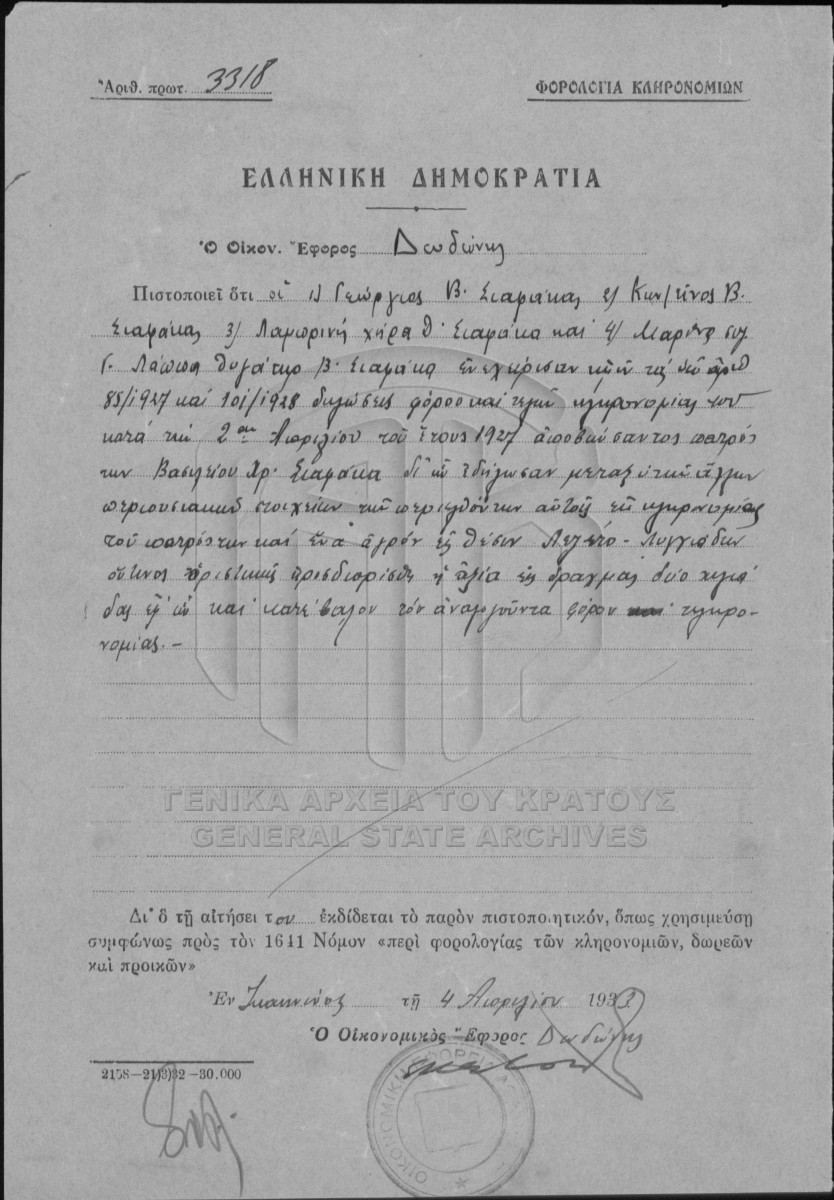 Ἀριθ. πρωτ. 3318
ΦΟΡΟΛΟΓΙΑ ΚΛΗΡΟΝΟΜΙΩΝ
ΕΛΛΗΝΙΚΗ ΔΗΜΟΚΡΑΤΙΑ
Ὁ Οἰκον. Ἔφορος Δωδώνης
Πιστοποιεῖ ὅτι οἱ 1) Γεώργιος Β. Σιαφάκας 2) Κων/τῖνος Β.
Σιαφάκας 3) Λαμπρινή χήρα Θ. Σιαφάκα καὶ 4) συζ
Γ. Λάππα θυγάτηρ Β. Σιαφάκα ἐνεχείρισαν ἡμῖν τὰς ὑπ' ἀριθ
85/1927 καὶ 101/1928 δηλώσεις φόρου καὶ τελῶν κληρονομίας τοῦ
κατά τὴν 2αν Ἀπριλίου τοῦ ἔτους 1927 ἀποβιώσαντος πατρός
των Βασιλείου Χρ. Σιαφάκα δι' ὧν ἐδήλωσαν μεταξὺ τῶν ἄλλων
περιουσιακῶν στοιχείων τῶν περιελθόντων αὐτοῖς ἐκ κληρονομίας
τοῦ πατρός των καὶ ἕνα ἀγρόν εἰς θέσιν Λογγάδων
οὗτινος ὁριστικῶς προσδιορίσθη ἡ ἀξία εἰς δραχμάς δύο χιλιά
δας ἐφ' ὧν καὶ κατέβαλον τόν ἀναλογοῦντα φόρον κληρο-
νομίας.-
ΓΕΝΙΚΑ ΑΡΧΕΙΑ ΤΟΥ ΚΡΑΤΟΥΣ
GENERAL STATE ARCHIVES
Δι' ὃ τῇ αἰτήσει του ἐκδίδεται τὸ παρὸν πιστοποιητικόν, ὅπως χρησιμεύσῃ
συμφώνως πρὸς τὸν 1641 Νόμον «περὶ φορολογίας τῶν κληρονομιῶν, δωρεῶν
καὶ προικῶν»
Ἐν Ἰωαννίνοις τῇ 4 Ἀπριλίου 1933
Ὁ Οἰκονομικὸς Ἔφορος Δωδώνης
2158—21)3)32 —30.000
ΟΙΚΟΝΟΜΙΚΗ ΕΦΟΡΕΙΑ